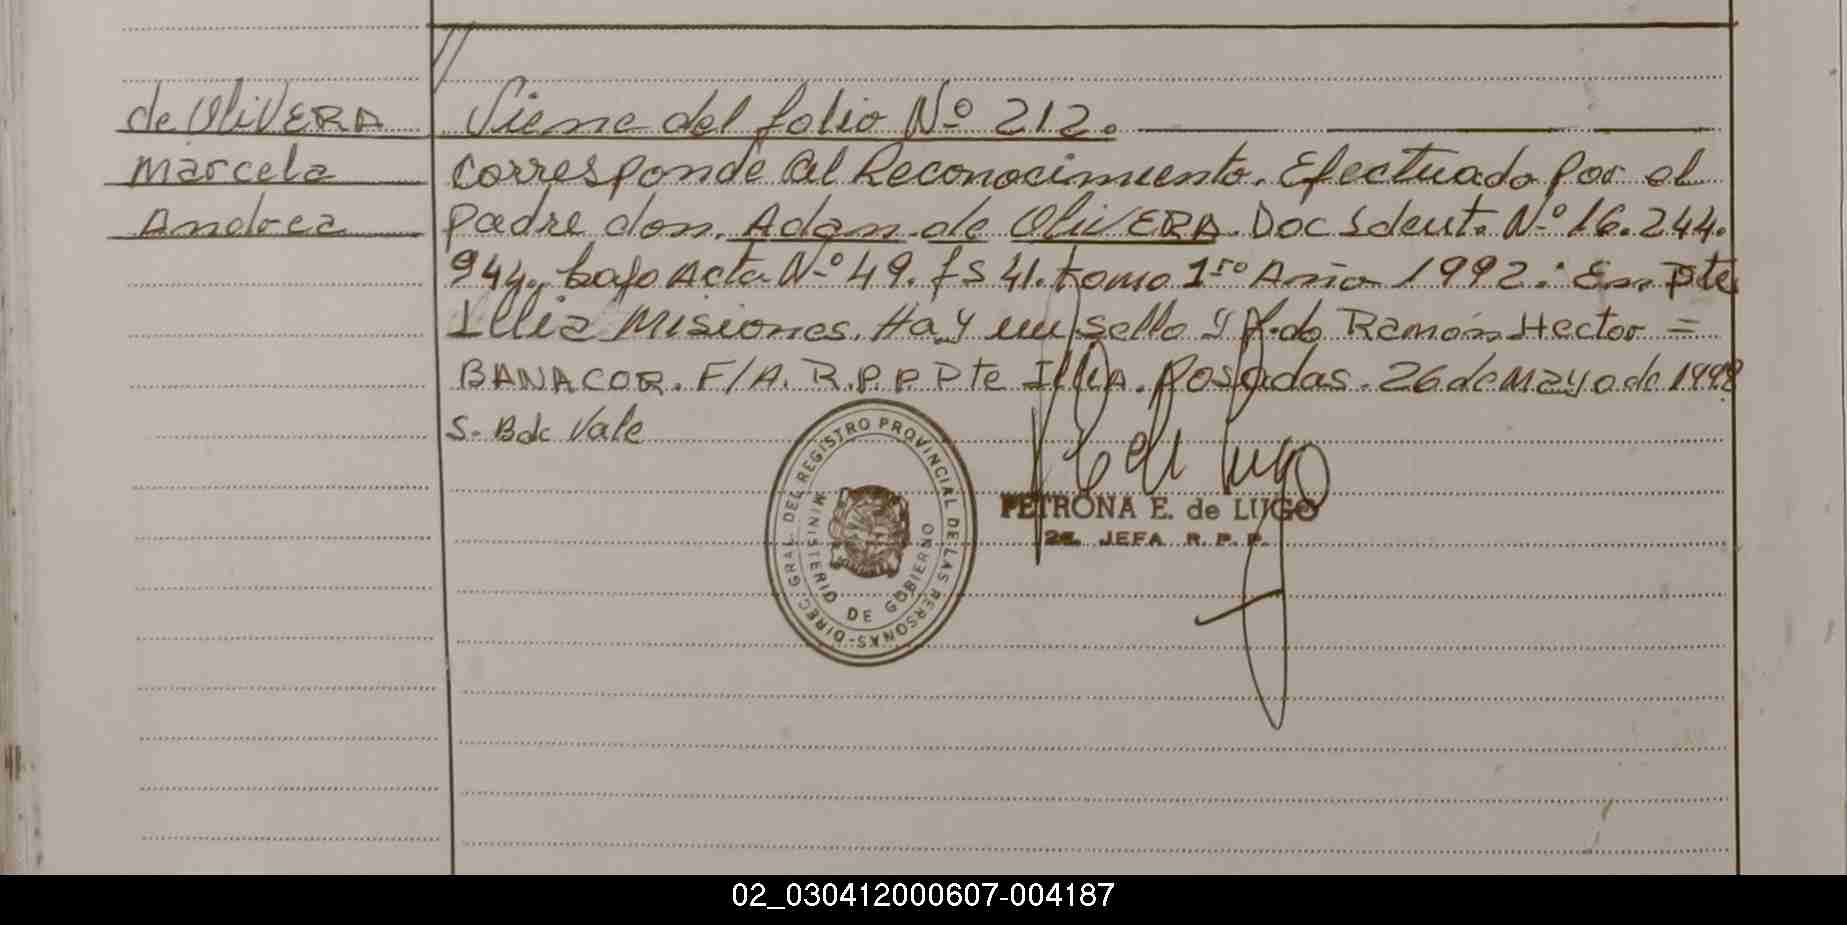 de OliVERA
Marcela
Andrea
Viene del folio Nº 212.
Corresponde al Reconocimiento. Efectuado por el
padre don. Adan de OliVERA. Doc Ident. Nº 16.244.
944. bajo Acta Nº 49. fs 41. tomo 1ro Año 1992. En Pte
Illia Misiones. Hay un sello y f.do Ramón Hector =
BANACOR. F/A. R.P.P Pte Illia. Posadas. 26 de Mayo de 1998
S. Bdc Vale
DIREC. GRAL. DEL REGISTRO PROVINCIAL DE LAS PERSONAS-
MINISTERIO DE GOBIERNO
PETRONA E. de LUGO
JEFA R. P. P.
02_030412000607-004187